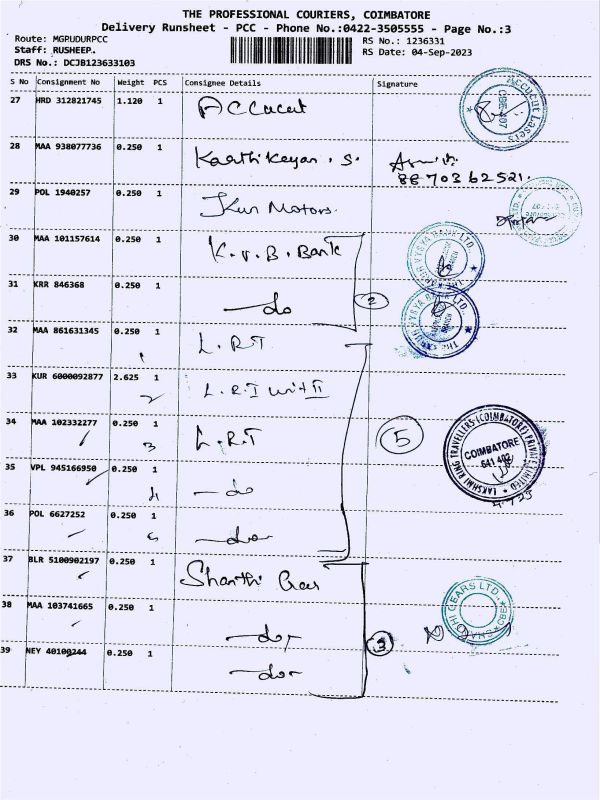 THE PROFESSIONAL COURIERS, COIMBATORE
Delivery Runsheet - PCC - Phone No.:0422-3505555 - Page No.:3
Route: MGRUDURPCC RS No.: 1236331
Staff: RUSHEEP. RS Date: 04-Sep-2023
DRS No.: DCJB123633103
S No Consignment No Weight PCS Consignee Details Signature
27 HRD 312821745 1.120 1 Accucut
Accucut Lasers
28 MAA 938077736 0.250 1 Kaathikeyan . S.
8870362521.
29 POL 1940257 0.250 1 Kun Motors.
30 MAA 101157614 0.250 1 K.V.B. Bank
THE KARUR VYSYA BANK LTD.
31 KRR 846368 0.250 1 —do 2
THE KARUR VYSYA BANK LTD.
32 MAA 861631345 0.250 1 L.R.T
1
33 KUR 6000092877 2.625 1 L.R.T unit II
2
34 MAA 102332277 0.250 1 L.R.T 5
3
LAKSHMI RING TRAVELLERS (COIMBATORE) PRIVATE LIMITED
COIMBATORE
641 402
35 VPL 945166950 0.250 1 —do
4
36 POL 6627252 0.250 1 —do
5
37 BLR 5100902197 0.250 1 Shanthi Gears
38 MAA 103741665 0.250 1 —do 3
SHANTHI GEARS LTD. CBE
39 NEY 40100244 0.250 1 —do